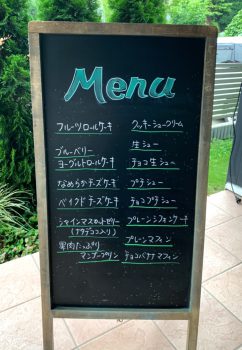 Menu
フルーツロールケーキ
ブルーベリー
ヨーグルトロールケーキ
なめらかチーズケーキ
ベイクドチーズケーキ
シャインマスカットゼリー
(ナタデココ入り)
果肉たっぷり
マンゴープリン
クッキーシュークリーム
生シュー
チョコ生シュー
プチシュー
チョコプチシュー
プレーンシフォンケーキ
プレーンマフィン
チョコバナナマフィン